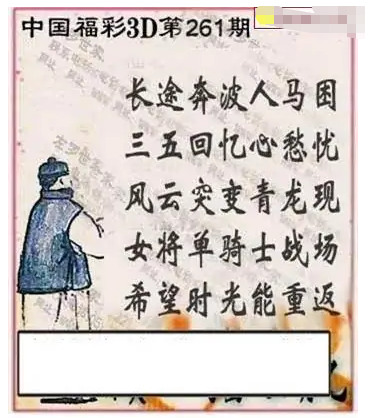 中国福彩3D第261期
长途奔波人马困
三五回忆心愁忧
风云突变青龙现
女将单骑士战场
希望时光能重返